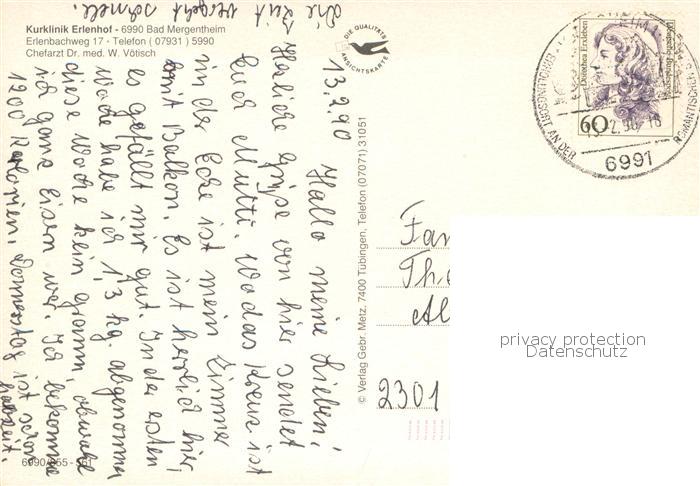 Kurklinik Erlenhof - 6990 Bad Mergentheim
Erlenbachweg 17 · Telefon ( 07931 ) 5990
Chefarzt Dr. med. W. Vötisch
DIE QUALITÄTS
ANSICHTSKARTE
13.2.90
Hallo meine Lieben!
Herzliche Grüße von hier sendet
Euch Mutti. Wo das Kreuz ist
in der Ecke ist mein Zimmer
mit Balkon. Es ist herrlich hier,
es gefällt mir gut. In der ersten
Woche habe ich 1,3 kg abgenommen
diese Woche kein Gramm, obwohl
ich ganz eisern war. Ich bekomme
1200 Kalorien. Donnerstag ist schon
halbzeit.
die Zeit vergeht schnell.
© Verlag Gebr. Metz, 7400 Tübingen, Telefon (07071) 31051
Dorothea Erxleben
Deutsche Bundespost
60
AN DER
ROMANTISCHEN
2.90-18
6991
Fam
The
Al
2301
privacy protection
Datenschutz
6990/655 - 561